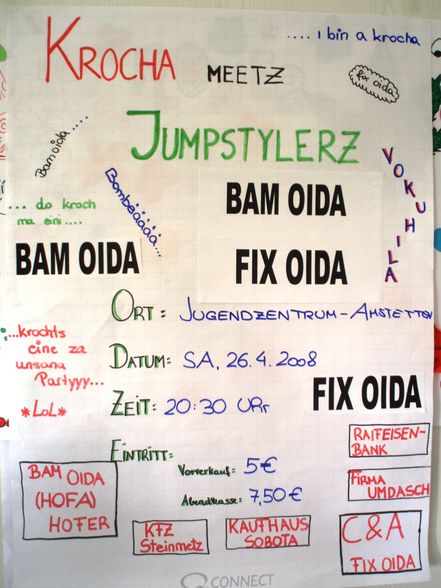 ....i bin a krocha
KROCHA MEETZ
fix oida
JUMPSTYLERZ
Bam oida....
Bombeäääää...
VOKUHILA
... do kroch
ma eini....
BAM OIDA
BAM OIDA
FIX OIDA
ORT: JUGENDZENTRUM-AMSTETTEN
...krochts
eine za
unsana
Partyyy...
*LoL*
DATUM: SA, 26.4.2008
FIX OIDA
ZEIT: 20:30 URr
EINTRITT:
Vorverkauf: 5€
Abendkasse: 7,50€
RAIFFEISEN-
BANK
FIRMA
UMDASCH
BAM OIDA
(HOFA)
HOFER
KFZ
Steinmetz
KAUFHAUS
SOBOTA
C&A
FIX OIDA
CONNECT